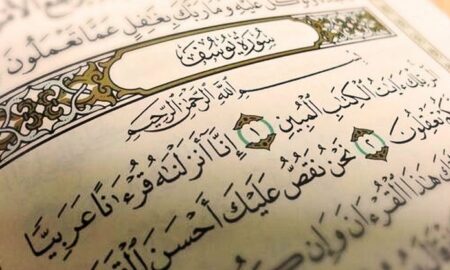 وَتَوَكَّلْ عَلَيْهِ وَمَا رَبُّكَ بِغَٰفِلٍ عَمَّا تَعْمَلُونَ
سُورَةُ يُوسُفَ
بِسْمِ اللَّهِ الرَّحْمَٰنِ الرَّحِيمِ
تِلْكَ ءَايَٰتُ الْكِتَٰبِ الْمُبِينِ ١ إِنَّا أَنزَلْنَٰهُ قُرْءَٰنًا عَرَبِيًّا
تَعْقِلُونَ ٢ نَحْنُ نَقُصُّ عَلَيْكَ أَحْسَنَ
هَٰذَا الْقُرْءَانَ وَإِن